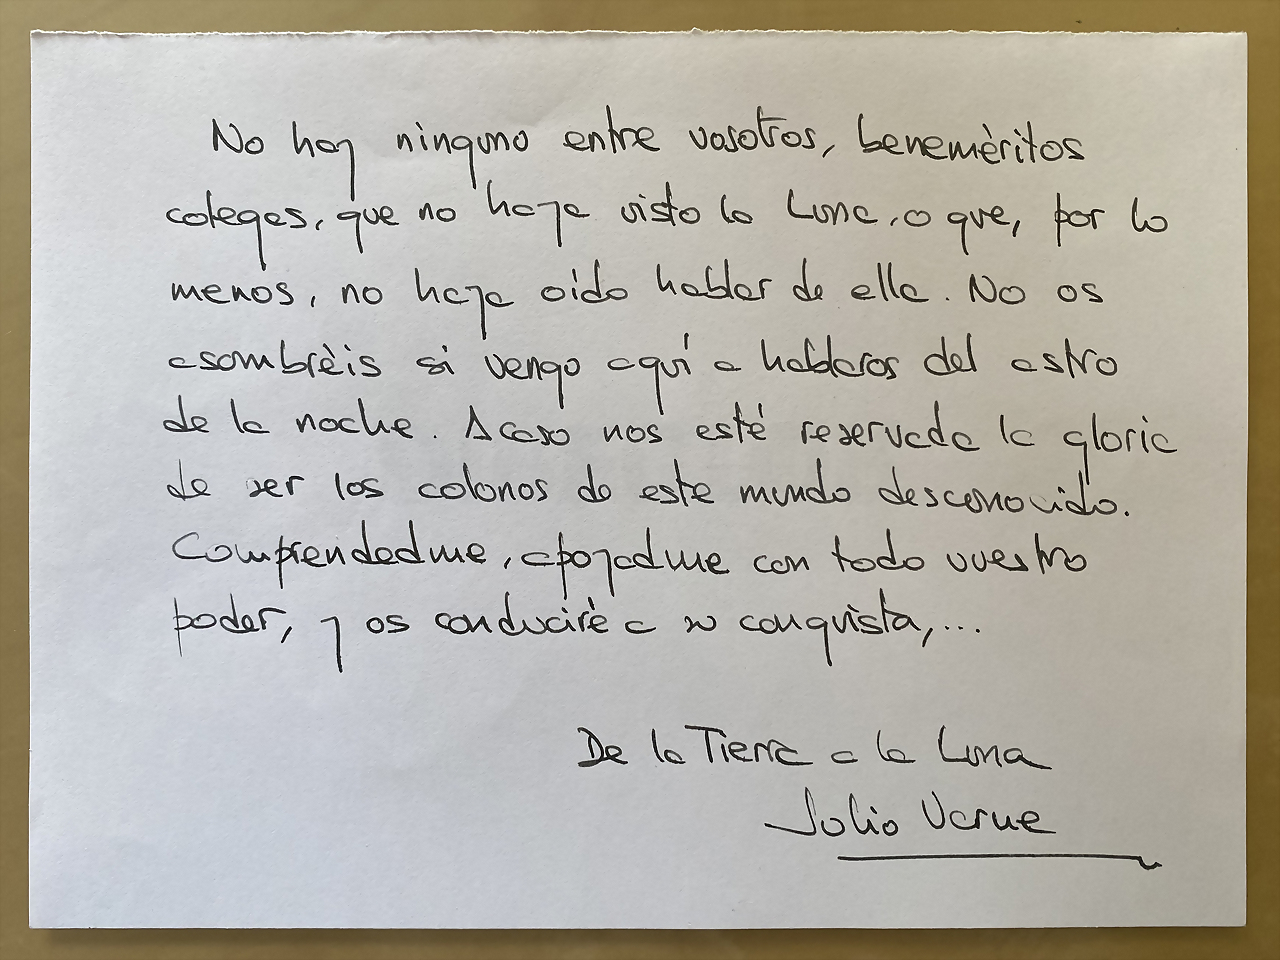 No hay ninguno entre vosotros, beneméritos
colegas, que no haya visto la Luna, o que, por lo
menos, no haya oido hablar de ella. No os
asombréis si vengo aquí a hablaros del astro
de la noche. Acaso nos esté reservada la gloria
de ser los colonos de este mundo desconocido.
Comprendedme, apoyadme con todo vuestro
poder, y os conduciré a su conquista,...
De la Tierra a la Luna
Julio Verne